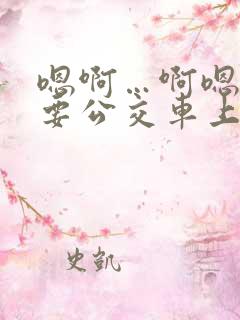 嗯啊…啊嗯
要公交车上
史凯